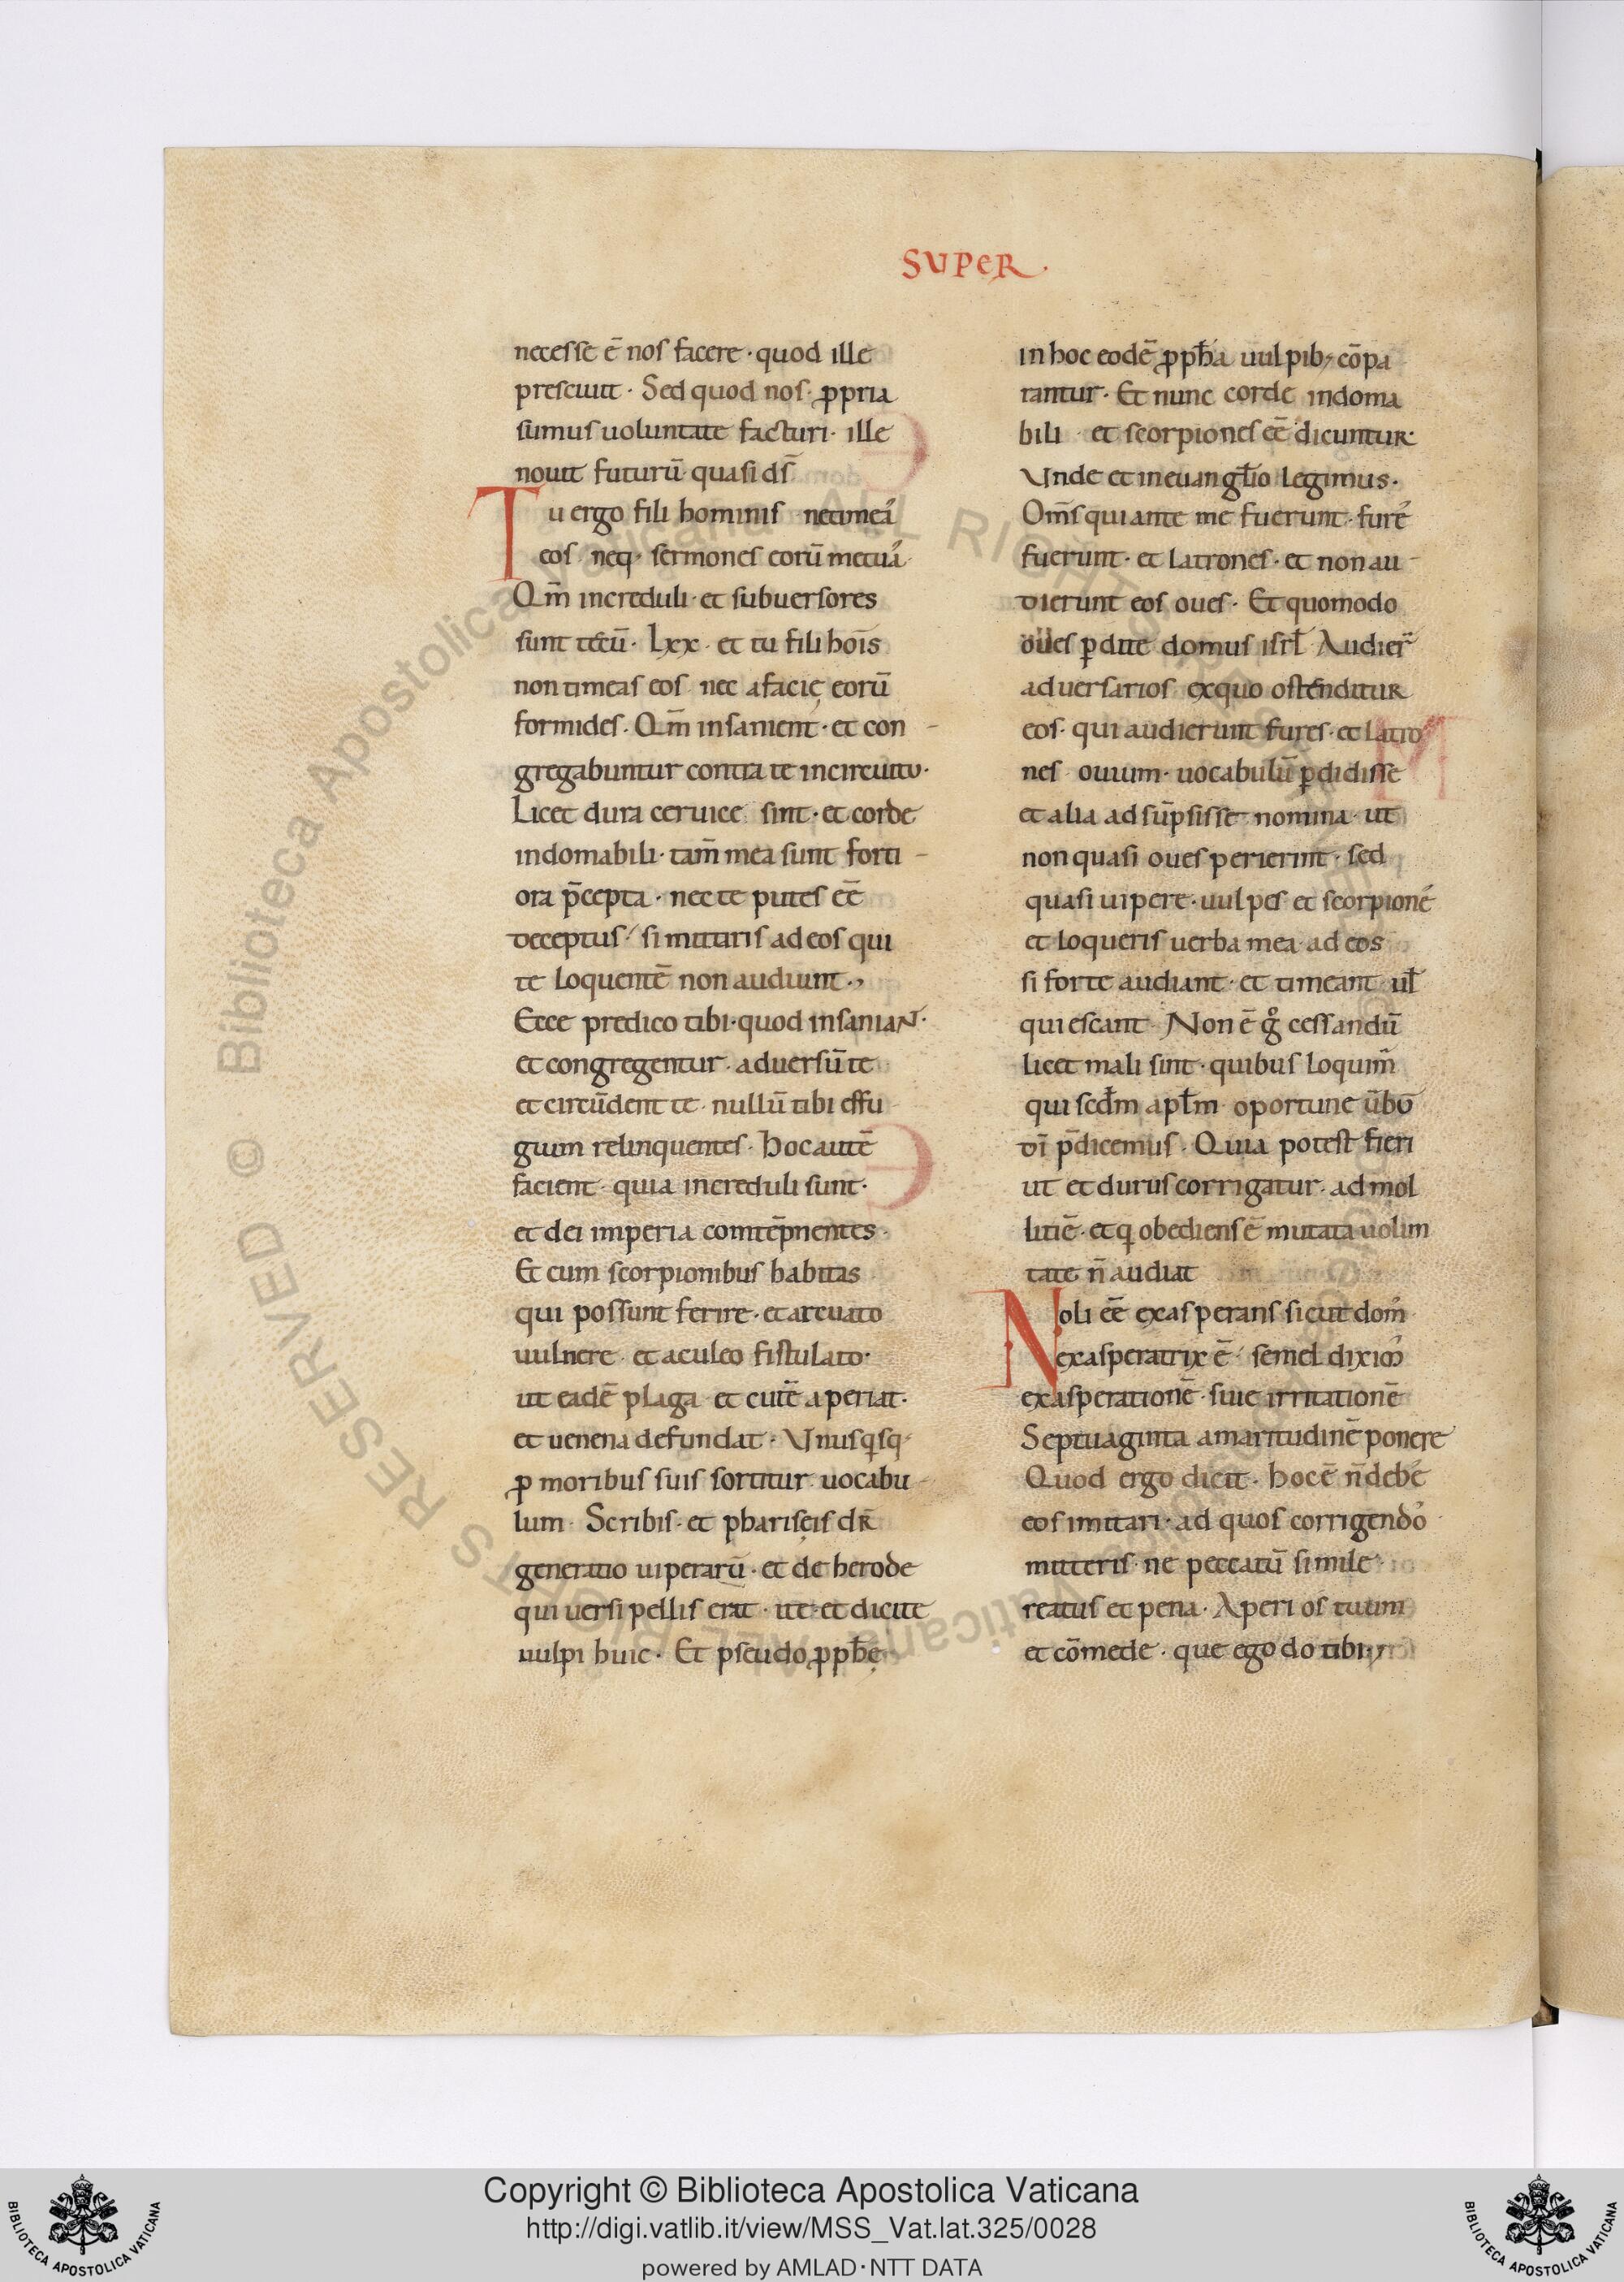 SUPER.
necesse ē nos facere · quod ille
presciuit · Sed quod nos · ꝓpria
sumus uoluntate facturi · ille
nouit futurū · quasi ds̄
Tu ergo fili hominis netimeaˀ
eos · neq· sermones eorū metuaˀ
Qm̄ increduli · et subuersores
sunt tecū · Lxx · et tu fili hoīs
non timeas eos · nec afacię eorū
formides · Qm̄ insanient · et con-
gregabuntur contra te incircuitu ·
Licet dura ceruice sint · et corde
indomabili · tam̄ mea sunt forti-
ora p̄cepta · nec te putes eē
deceptus / si mittaris ad eos qui
te loquentē non audiunt ·,
Ecce predico tibi · quod insaniaN ·
et congregentur · aduersū te
et circūdent te · nullū tibi effu
gium relinquentes · hoc autē
facient · quia increduli sunt ·
et dei imperia comtēpnentes ·
Et cum scorpionibus habitas
qui possunt ferire · et arcuato
uulnere · et aculeo fistulato ·
ut eadē plaga · et cutē aperiat ·
et uenena defundat · Unusqsq·
ꝓ moribus suis sortitur uocabu-
lum · Scribis · et pharisęis dr̄
generatio uiperarū · et de herode
qui uersipellis erat · ite et dicite
uulpi huic · Et pseudo ꝓph̄ę
in hoc eodē ꝓph̄a uulpib; cōpa
rantur · Et nunc corde indoma
bili et scorpiones eē dicuntur ·
Unde et ineuangl̄io legimus ·
Om̄s qui ante me fuerunt · fureˀ
fuerunt · et latrones · et non au-
dierunt eos oues · Et quomodo
oues ꝑdite domus isrl̄ Audier̄
aduersarios exquo ostenditur
eos · qui audierunt fures · et latro
nes ouium · uocabulū ꝑdidisse
et alia ad sūpsisse nomina · ut
non quasi oues perierint · sed
quasi uipere · uulpes et scorpioneˀ
et loqueris uerba mea ad eos
si forte audiant · et timeant ul̄
quiescant · Non ē gͦ cessandū
licet mali sint · quibus loquim̄
qui scd̄m apl̄m oportune ūbū
dī p̄dicemus · Quia potest fieri
ut et durus corrigatur · ad mol
litiē · et q obediens ē mutata uolun
tate n̄ audiat
Noli eē exasperans sicut domˀ
exasperatrix ē · semel diximˀ
exasperationē · siue irritationē
Septuaginta amaritudinē ponere
Quod ergo dicit · hoc ē n̄ debeˀ
eos imitari · ad quos corrigendoˀ
mitteris · ne peccatū simile
reatus et pena · Aperi os tuum
et cōmede · que ego do tibi ·,
Copyright © Biblioteca Apostolica Vaticana
http://digi.vatlib.it/view/MSS_Vat.lat.325/0028
powered by AMLAD·NTT DATA